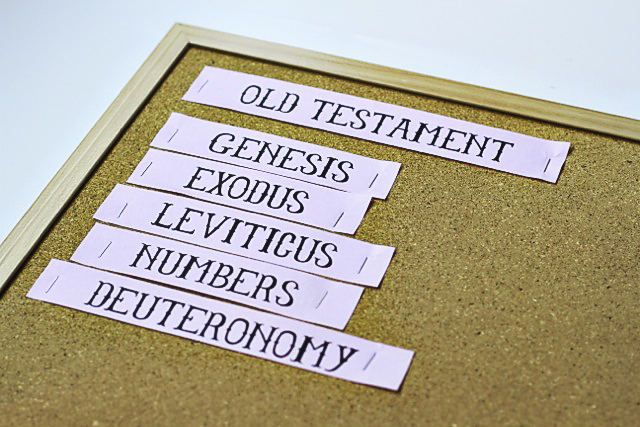 OLD TESTAMENT
GENESIS
EXODUS
LEVITICUS
NUMBERS
DEUTERONOMY